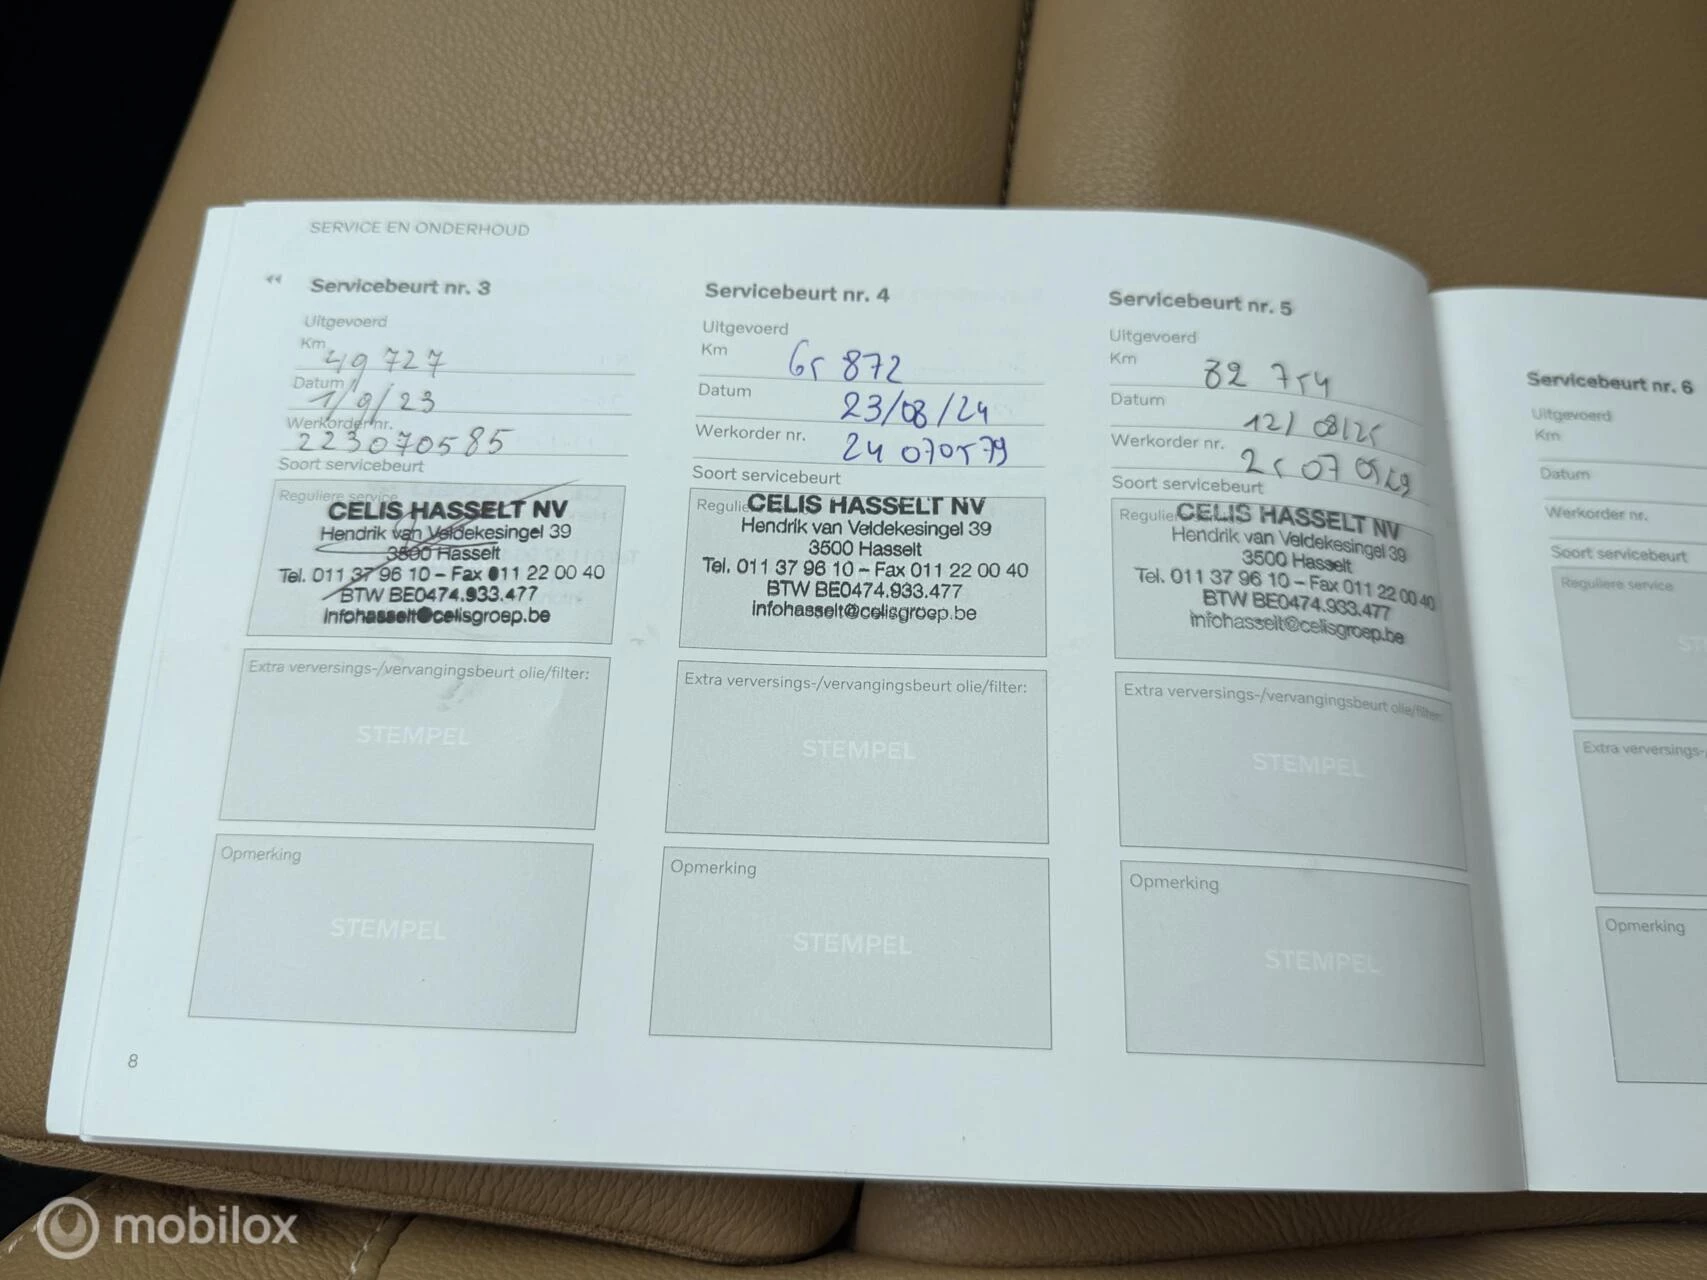 SERVICE EN ONDERHOUD
Servicebeurt nr. 3
Uitgevoerd
Km 49 727
Datum 1/9/23
Werkorder nr. 223070585
Soort servicebeurt
Reguliere service
CELIS HASSELT NV
Hendrik van Veldekesingel 39
3500 Hasselt
Tel. 011 37 96 10 – Fax 011 22 00 40
BTW BE0474.933.477
infohasselt@celisgroep.be
Extra verversings-/vervangingsbeurt olie/filter:
STEMPEL
Opmerking
STEMPEL
8
Servicebeurt nr. 4
Uitgevoerd
Km 65 872
Datum 23/08/24
Werkorder nr. 24 070579
Soort servicebeurt
CELIS HASSELT NV
Hendrik van Veldekesingel 39
3500 Hasselt
Tel. 011 37 96 10 – Fax 011 22 00 40
BTW BE0474.933.477
infohasselt@celisgroep.be
Extra verversings-/vervangingsbeurt olie/filter:
STEMPEL
Opmerking
STEMPEL
Servicebeurt nr. 5
Uitgevoerd
Km 82 754
Datum 12/08/25
Werkorder nr.
Soort servicebeurt
CELIS HASSELT NV
Hendrik van Veldekesingel 39
3500 Hasselt
Tel. 011 37 96 10 – Fax 011 22 00 40
BTW BE0474.933.477
infohasselt@celisgroep.be
Extra verversings-/vervangingsbeurt olie/filter:
STEMPEL
Opmerking
STEMPEL
Servicebeurt nr. 6
Uitgevoerd
Km
Datum
Werkorder nr.
Soort servicebeurt
Reguliere service
Extra verversings-
Opmerking
mobilox